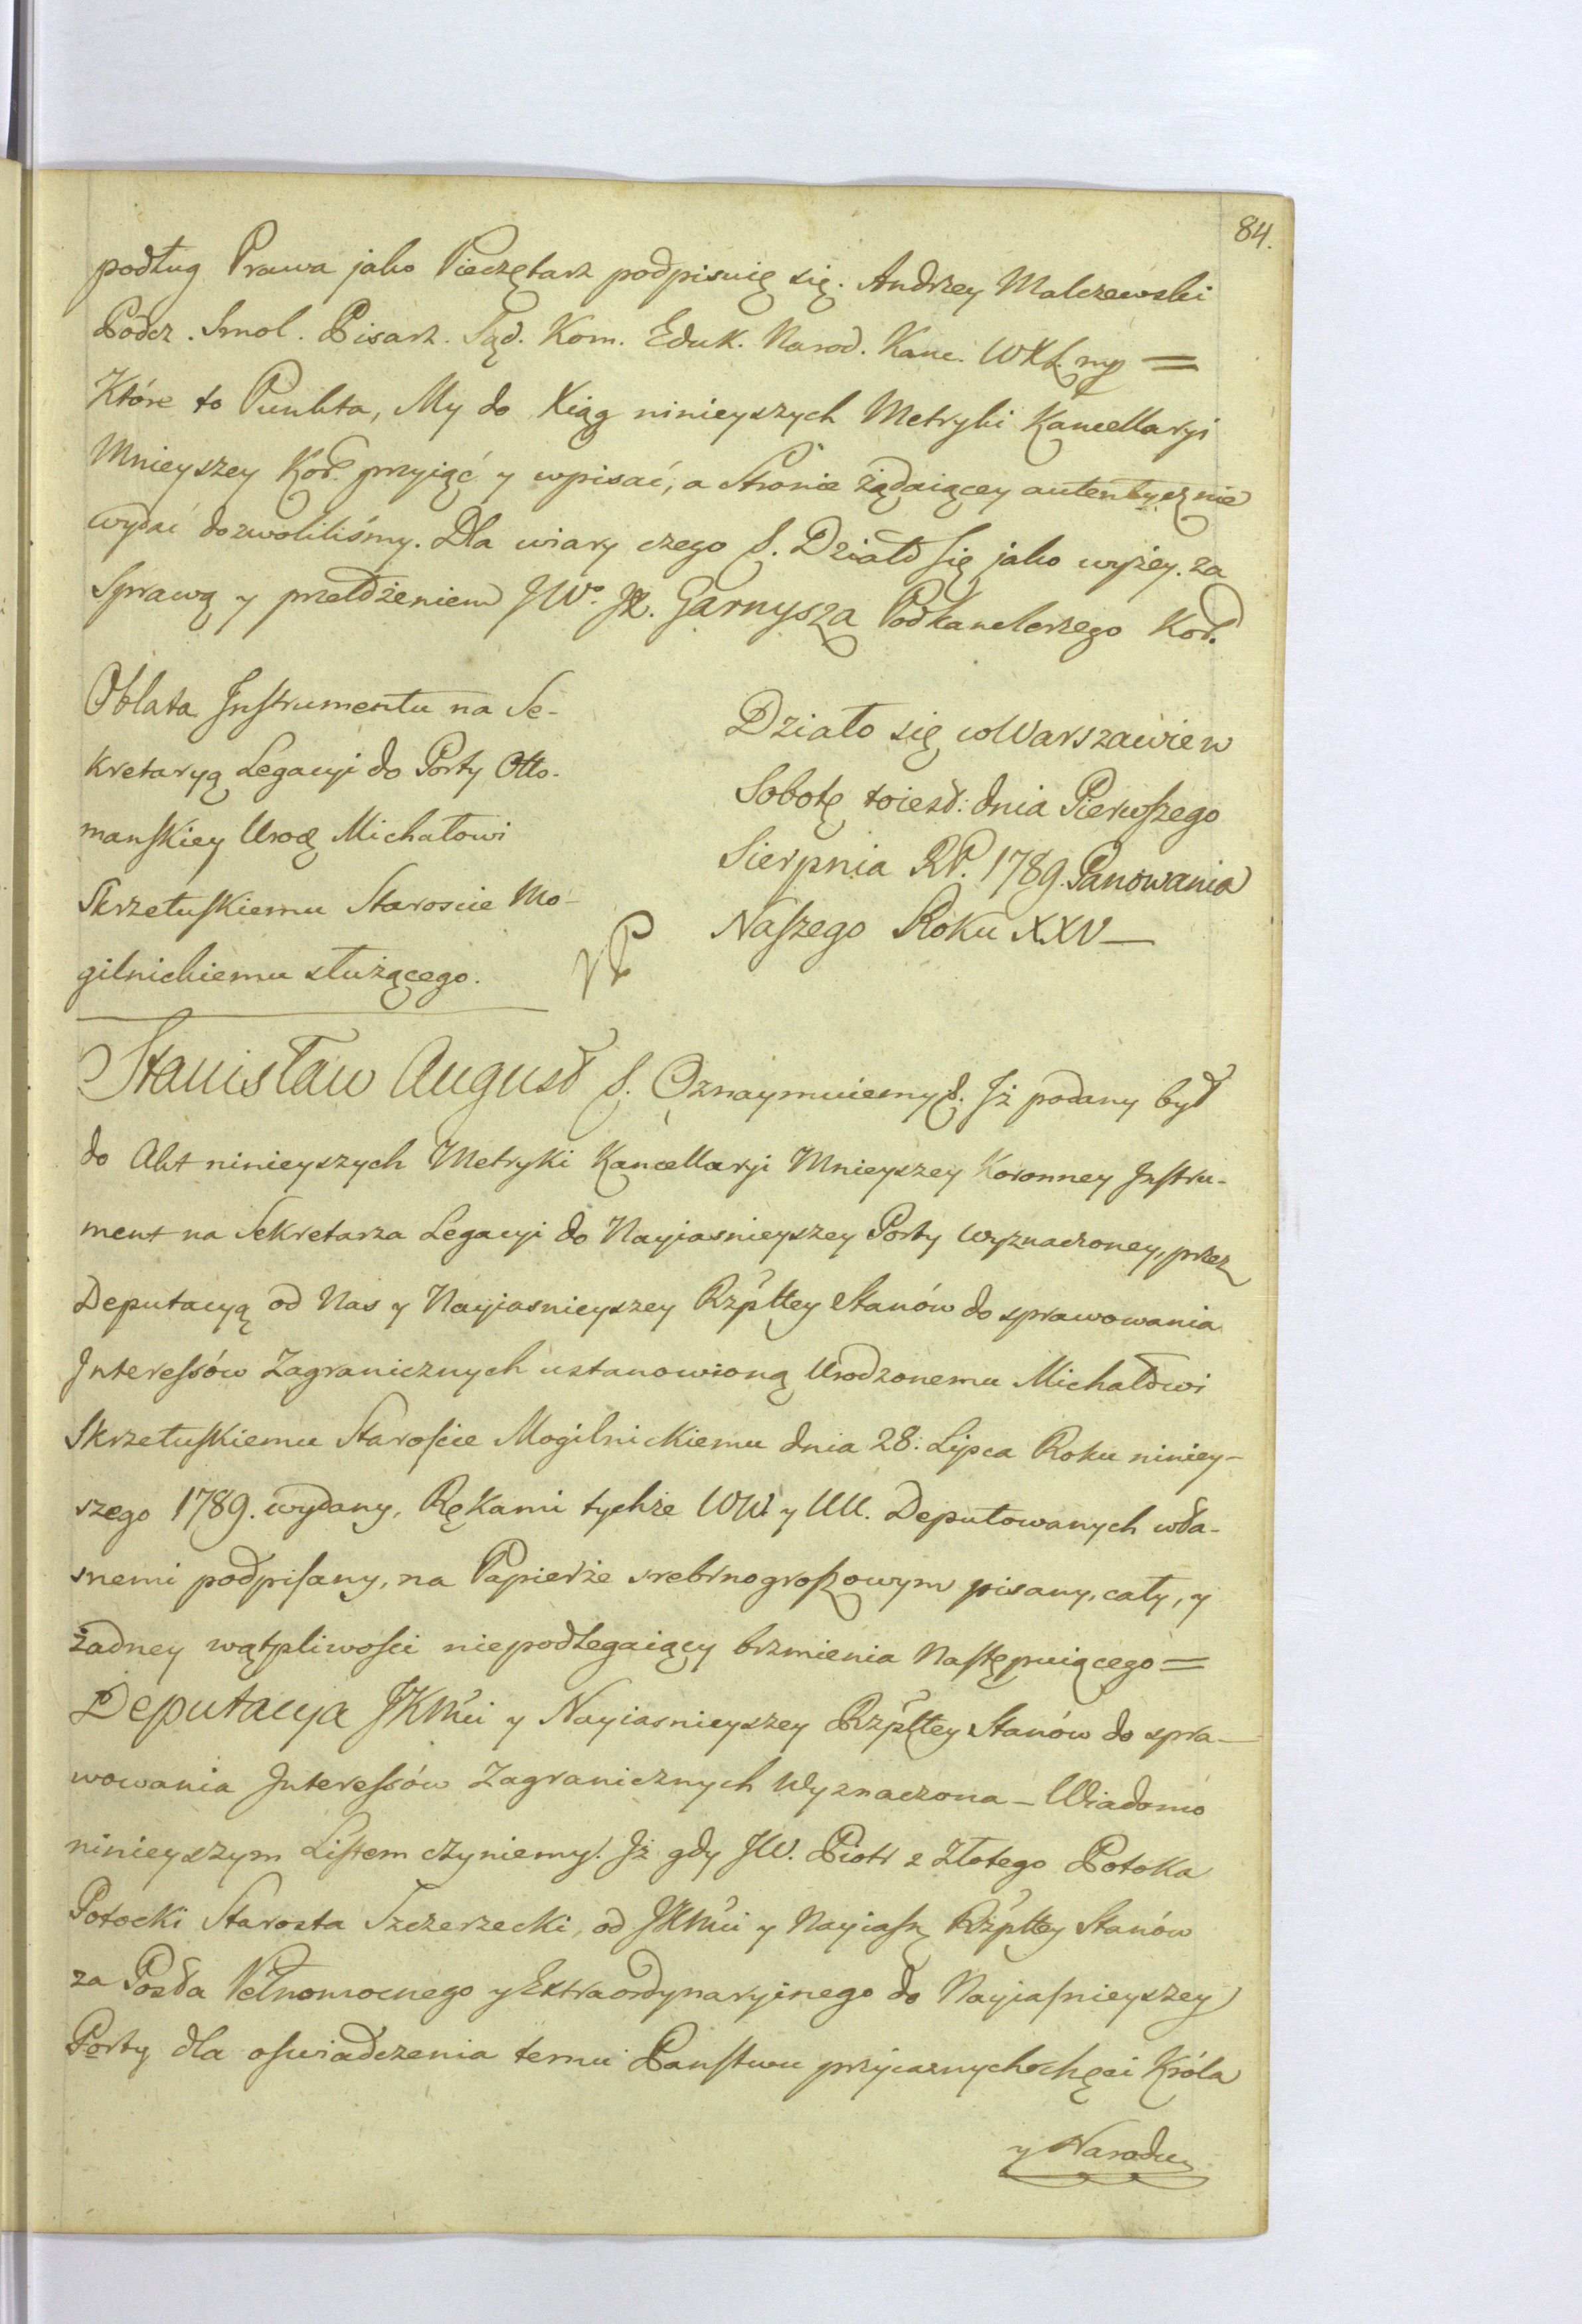 84.
podług Prawa jako Pieczętarz podpisuię się. Andrzey Malczewski
Podcz. Smol. Pisarz. Sąd. Kom. Eduk. Narod. Kanc. WXL. mp =
Które to Punkta, My do Xiąg ninieyszych Metryki Kancellaryi
Mnieyszey Kor. przyiąć y wpisać, a Stronie żądaiącey autentycznie
wydać dozwoliliśmy. Dla wiary czego &. Działo się jako wyżey. za
Sprawą y przełożeniem JW. JX. Garnysza Podkanclerzego Kor.
Oblata Instrumentu na Se-
kretaryą Legacyi do Porty Otto-
manskiey Urod. Michałowi
Skrzetuskiemu Staroscie Mo-
gilnickiemu służącego.
Działo się w Warszawie w
Sobotę toiest: dnia Pierwszego
Sierpnia RP. 1789. Panowania
Naszego Roku XXV —
Stanisław August &. Oznaymuiemy &. Iż podany był
do Akt ninieyszych Metryki Kancellaryi Mnieyszey Koronney Instru-
ment na Sekretarza Legacyi do Nayiasnieyszey Porty wyznaczoney, przez
Deputacyą od Nas y Nayiasnieyszey Rzpltey Stanów do sprawowania
Interessów Zagranicznych ustanowioną Urodzonemu Michałowi
Skrzetuskiemu Staroscie Mogilnickiemu dnia 28. Lipca Roku niniey-
szego 1789. wydany, Rękami tychże WW y UU. Deputowanych wła-
snemi podpisany, na Papierze srebrnogroszowym pisany, cały, y
żadney wątpliwości niepodlegaiący brzmienia Następuiącego =
Deputacya JKMci y Nayiasnieyszey Rzpltey Stanów do spra-
wowania Interessów Zagranicznych Wyznaczona — Wiadomo
ninieyszym Listem czyniemy. Iż gdy JW. Piotr z Złotego Potoka
Potocki Starosta Szczerzecki, od JKMci y Nayiasn. Rzpltey Stanów
za Posła Pełnomocnego y Extraordynaryinego do Nayiasnieyszey
Porty dla oswiadczenia temu Panstwu przyiaznych chęci Króla
y Narodu